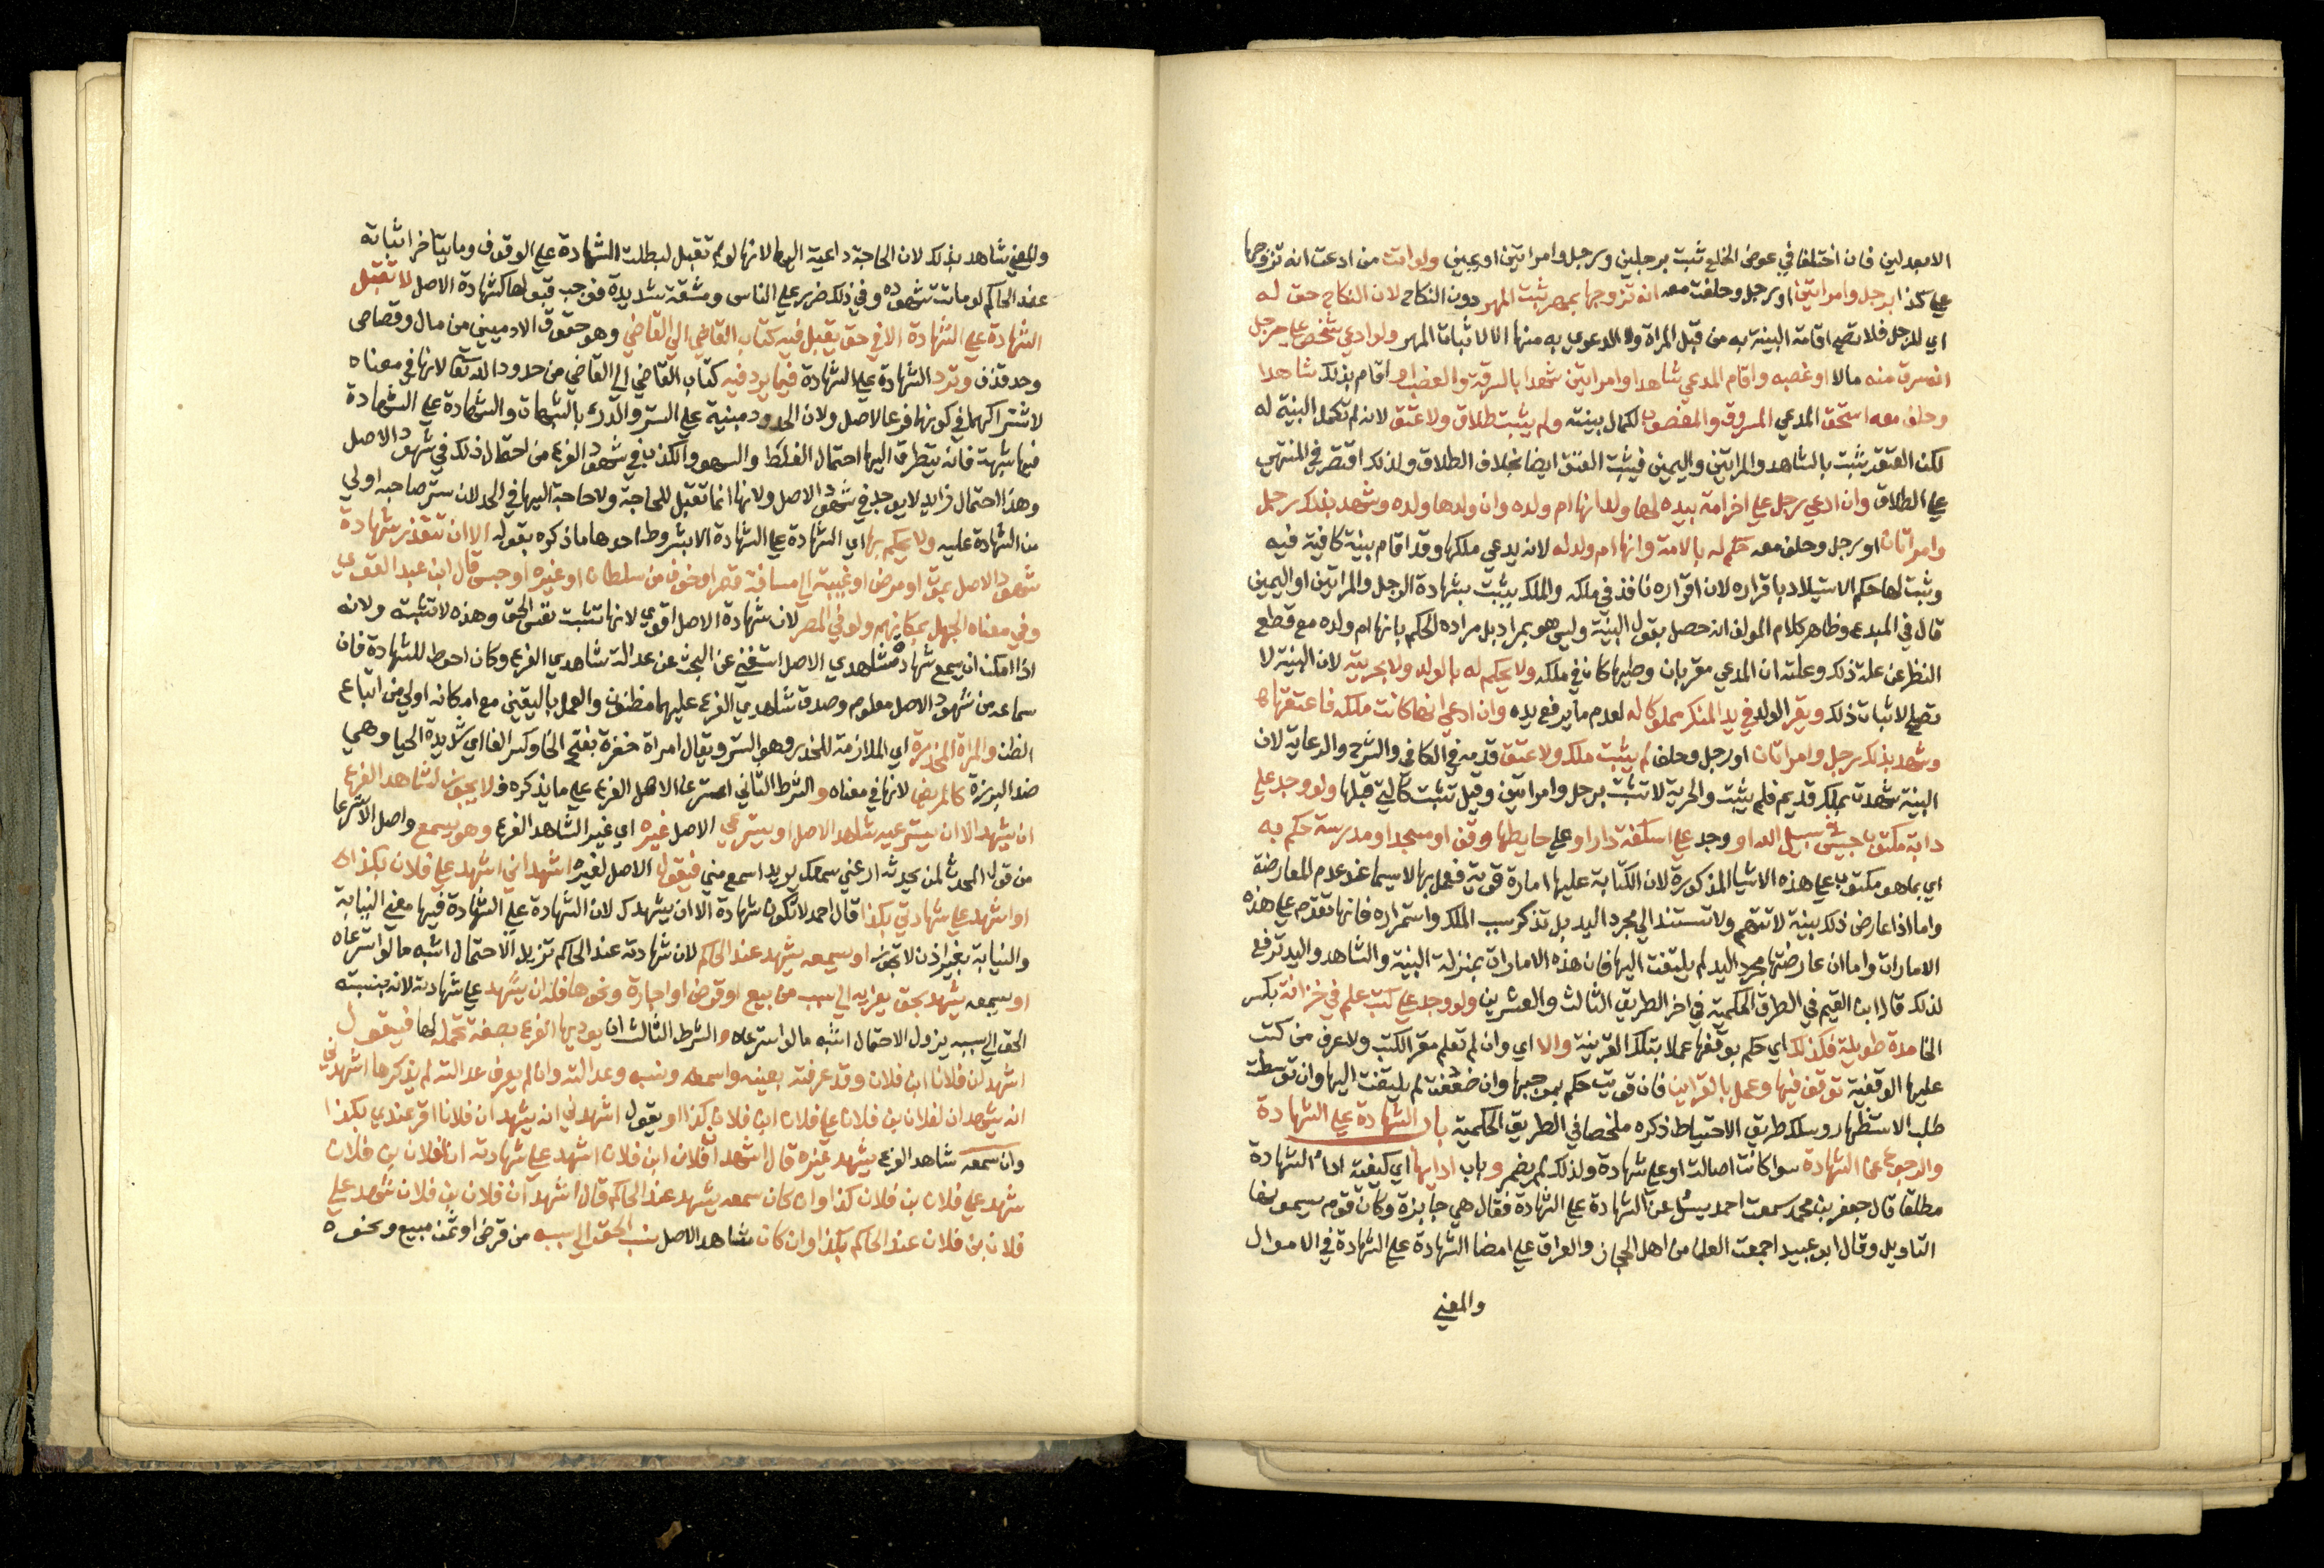 الا بعدلين فان اختلفا في عوض الخلع ثبت برجلين ورجل وامراتين او يمين ولو اتت من ادعت انه تزوجها
علي كذا برجل وامراتين او برجل وحلفت معه انه تزوجها بمهر ثبت المهر دون النكاح لان النكاح حق له
اي للرجل فلا تصح اقامة البينة به من قبل المراة ولا الدعوي به منها الا لاثباتا المهر ولو ادعي شخص علي رجل
انه سرق منه مالا او غصبه واقام المدعي شاهدا وامراتين شهدا بالسرقة والغصب او اقام بذلك شاهدا
وحلف معه استحق المدعي المسروق والمغصوب لكمال بينته ولم يثبت طلاق ولا عتق لانه لم تكمل البينة له
لكن العتق يثبت بالشاهد والمراتين واليمين فيثبت العتق ايضا بخلاف الطلاق ولذلك اقتصر في المنتهي
علي الطلاق وان ادعي رجل علي اخر امة بيده لها ولد انها ام ولده وان ولدها ولده وشهد بذلك رجل
وامراتان او رجل وحلف معه حكم له بالامة وانها ام ولد له لانه يدعي ملكها وقد اقام بينة كافية فيه
وثبت لها حكم الاستيلاد باقراره لان اقراره نافذ في ملكه والملك يثبت بشهادة الرجل والمراتين او اليمين
قال في المبدع وظاهر كلام المولف انه حصل بقول البينة وليس هو بمراد بل مراده الحكم بانها ام ولده مع قطع
النظر عن علة ذلك وعلته ان المدعي مقر بان وطيها كان في ملكه ولا يحكم له بالولد ولا بحريته لان البينة لا
تصلح لاثبات ذلك ويقر الولد في يد المنكر مملوكا له لعدم ما يرفع يده وان ادعي انها كانت ملكه فاعتقها
وشهد بذلك رجل وامراتان او رجل وحلف لم يثبت ملك ولا عتق قدمه في الكافي والشرح والرعاية لان
البينة شهدت بملك قديم فلم يثبت والحرية لا تثبت برجل وامراتين وقيل تثبت كالتي قبلها ولو وجد علي
دابة مكتوب حبيس في سبيل الله او وجد علي اسكفة دار او علي حايطها وقف او مسجد او مدرسة حكم به
اي بما هو مكتوب علي هذه الاشيا المذكورة لان الكتابة عليها امارة قوية فعمل بها لا سيما عند عدم المعارضة
واما اذا عارض ذلك بينة لا تتهم ولا تستند الي مجرد اليد بل تذكر سبب الملك واستمراره فانها تقدم علي هذه
الامارات واما ان عارضتها مجرد اليد لم يلتفت اليها فان هذه الامارات بمنزلة البينة والشاهد واليد ترفع
لذلك قاله ابن القيم في الطرق الحكمية في اخر الطريق الثالث والعشرين ولو وجد علي كتب علم في خزانة بكسر
الخا مدة طويلة فكذلك اي حكم بوقفها عملا بتلك القرينة والا اي وان لم تعلم مقر الكتب ولا عرف من كتب
عليها الوقفية توقف فيها وعمل بالقراين فان قويت حكم بموجبها وان ضعفت لم يلتفت اليها وان توسطت
طلب الاستظهار وسلك طريق الاحتياط ذكره ملخصا في الطريق الحكمية باب الشهادة علي الشهادة
والرجوع عن الشهادة سوا كانت اصالة او علي شهادة ولذلك لم يضمر وباب ادايها اي كيفية اداء الشهادة
مطلقا قال جعفر بن محمد سمعت احمد يسئل عن الشهادة علي الشهادة فقال هي جايزة وكان قوم يسمونها
التاويل وقال ابو عبيد اجمعت العلما من اهل الحجاز والعراق علي امضا الشهادة علي الشهادة في الاموال
والمعني
والمعني شاهد بذلك لان الحاجة داعية اليها لانها لو لم تقبل لبطلت الشهادة علي الوقوف وما يتاخر اثباته
عند الحاكم لو ماتت شهوده وفي ذلك ضرر علي الناس ومشقة شديدة فوجب قبولها كشهادة الاصل لا تقبل
الشهادة علي الشهادة الا في حق يقبل فيه كتاب القاضي الي القاضي وهو حقوق الادميين من مال وقصاص
وحد قذف وترد الشهادة علي الشهادة فيما يرد فيه كتاب القاضي الي القاضي من حدود الله تعالي لانها في معناه
لاشتراكهما في كونها فرعا لاصل ولان الحدود مبنية علي الستر والدرء بالشبهات والشهادة علي الشهادة
فيها شبهة فانه يتطرق اليها احتمال الغلط والسهو والكذب في شهود الفرع مع احتمال ذلك في شهود الاصل
وهذا احتمال زايد لا يوجد في شهود الاصل ولانها انما تقبل للحاجة ولا حاجة اليها في الحد لان ستر صاحبه اولي
من الشهادة عليه ولا يحكم بها اي الشهادة علي الشهادة الا بشروط احدها ما ذكره بقوله الا ان تتعذر شهادة
شهود الاصل بموت او مرض او غيبة الي مسافة قصر او خوف من سلطان او غيره او حبس قال ابن عبد القوي
وفي معناه الجهل بمكانهم ولو في المصر لان شهادة الاصل اقوي لانها تثبت نفس الحق وهذه لا تثبته ولانه
اذا امكن ان يسمع شهادة شاهدي الاصل استغني عن البحث عن عدالة شاهدي الفرع وكان احوط للشهادة فان
سماعه من شهود الاصل معلوم وصدق شاهدي الفرع عليهما مظنون والعمل باليقين مع امكانه اولي من اتباع
الظن والمراة المخدرة اي الملازمة للخدر وهو الستر ويقال امراة خفرة بفتح الخا وكسر الفا اي شديدة الحيا وهي
ضد البرزة كالمريض لانها في معناه والشرط الثاني استرعا الاصل الفرع علي ما يذكره فلا يجوز لشاهد الفرع
ان يشهد الا ان يسترعيه شاهد الاصل او يسترعي الاصل غيره اي غير الشاهد الفرع وهو يسمع واصل الاسترعا
من قول المحدث لمن يحدثه ارعني سمعك يريد اسمع مني فيقول الاصل لغيره اشهد اني اشهد علي فلان بكذا
او اشهد علي شهادتي بكذا قال احمد لا تكون شهادة الا ان يشهدك لان الشهادة علي الشهادة فيها معني النيابة
والنيابة بغير اذن لا تجوز او يسمعه يشهد عند الحاكم لان شهادته عند الحاكم تزيل الاحتمال اشبه ما لو استرعاه
او يسمعه يشهد بحق يعزيه الي سبب من بيع او قرض او اجارة ونحوها فله ان يشهد علي شهادته لانه بنسبته
الحق الي سببه يزول الاحتمال اشبه ما لو استرعاه والشرط الثالث ان يوديها الفرع بصفة تحمله لها فيقول
اشهد ان فلانا ابن فلان وقد عرفته بعينه واسمه ونسبه وعدالته وان لم يعرف عدالته لم يذكرها اشهدني
انه يشهد ان لفلان بن فلان علي فلان ابن فلان كذا او يقول اشهدني انه يشهد ان فلانا اقر عندي بكذا
وان سمعه شاهد الفرع يشهد غيره قال اشهد ان فلان ابن فلان اشهد علي شهادته ان لفلان بن فلان
شهد علي فلان بن فلان كذا وان كان سمعه يشهد عند الحاكم قال اشهد ان فلان بن فلان شهد علي
فلان بن فلان عند الحاكم بكذا وان كان شاهد الاصل نسب الحق الي سببه من قرض او ثمن مبيع ونحوه